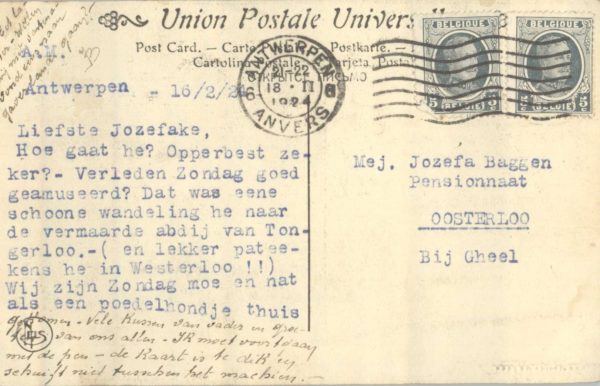 Union Postale Univers
Post Card. — Carte — Postkarte. —
Cartolina postale Tarjeta Posta
ПИСЬМО
ANTWERPEN
18 · II
1924
ANVERS
6 6
BELGIQUE
BELGIQUE
5 5
5 5
A.M.
Antwerpen - 16/2/24
Liefste Jozefake,
Hoe gaat he? Opperbest ze-
ker?- Verleden Zondag goed
geamuseerd? Dat was eene
schoone wandeling he naar
de vermaarde abdij van Ton-
gerloo.-( en lekker patee-
kens he in Westerloo !!)
Wij zijn Zondag moe en nat
als een poedelhondje thuis
gekomen - Vele kussen van vader en groe-
ten van ons allen - Ik moet voortdoen
met de pen - de kaart is te dik en
schuift niet tusschen het machien. -
Mej. Jozefa Baggen
Pensionnaat
OOSTERLOO
Bij Gheel